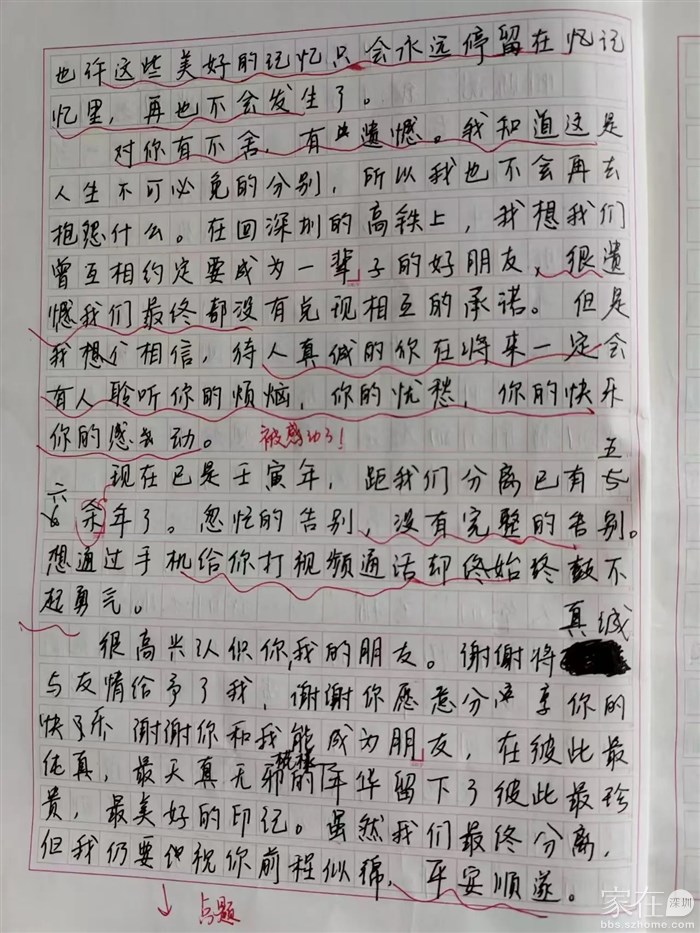 也许这些美好的记忆只会永远停留在忆记
忆里，再也不会发生了。
对你有不舍，有些遗憾。我知道这是
人生不可必免的分别，所以我也不会再去
抱怨什么。在回深圳的高铁上，我想我们
曾互相约定要成为一辈子的好朋友，很遗
憾我们最终都没有兑现相互的承诺。但是
我想相信，待人真诚的你在将来一定会
有人聆听你的烦恼，你的忧愁，你的快乐
你的感动。
被感动了！
现在已是壬寅年，距我们分离已有五
六年了。忽忙的告别，没有完整的告别。
想通过手机给你打视频通话却终始终鼓不
起勇气。
很高兴认识你，我的朋友。谢谢将真诚
与友情给予了我，谢谢你愿意分享你的
快乐 谢谢你和我能成为朋友，在彼此最
纯真，最天真无邪的年华留下了彼此最珍
贵，最美好的印记。虽然我们最终分离，
但我仍要祝你前程似锦，平安顺遂。
点题
家在深圳
bbs.szhome.com